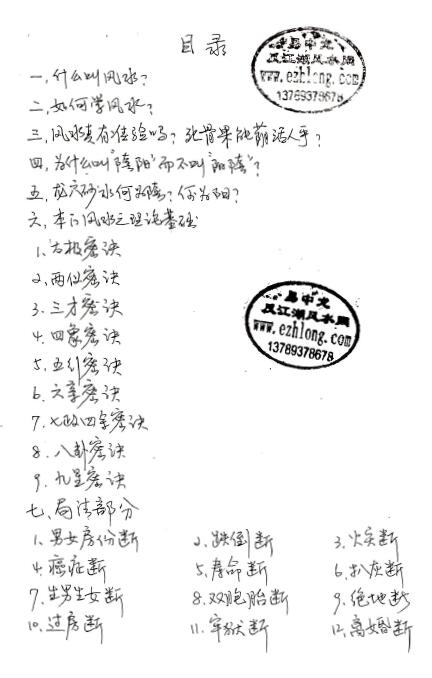 目录
易中龙
风江湖风水网
www.ezhlong.com
13769378678
一、什么叫风水?
二、如何学风水?
三、风水真有准验吗? 死骨果能荫活人乎?
四、为什么叫"阴阳"而不叫"阳阴"?
五、龙穴砂水何为阴? 何为阳?
六、本门风水之理论基础
1、太极密诀
2、两仪密诀
3、三才密诀
易中龙
风江湖风水网
www.ezhlong.com
13769378678
4、四象密诀
5、五行密诀
6、六亲密诀
7、七政四余密诀
8、八卦密诀
9、九星密诀
七、局法部分
1、男女房份断 2、跌倒断 3、火灾断
4、癌症断 5、寿命断 6、扒灰断
7、生男生女断 8、双胞胎断 9、绝地断
10、过房断 11、牢狱断 12、离婚断